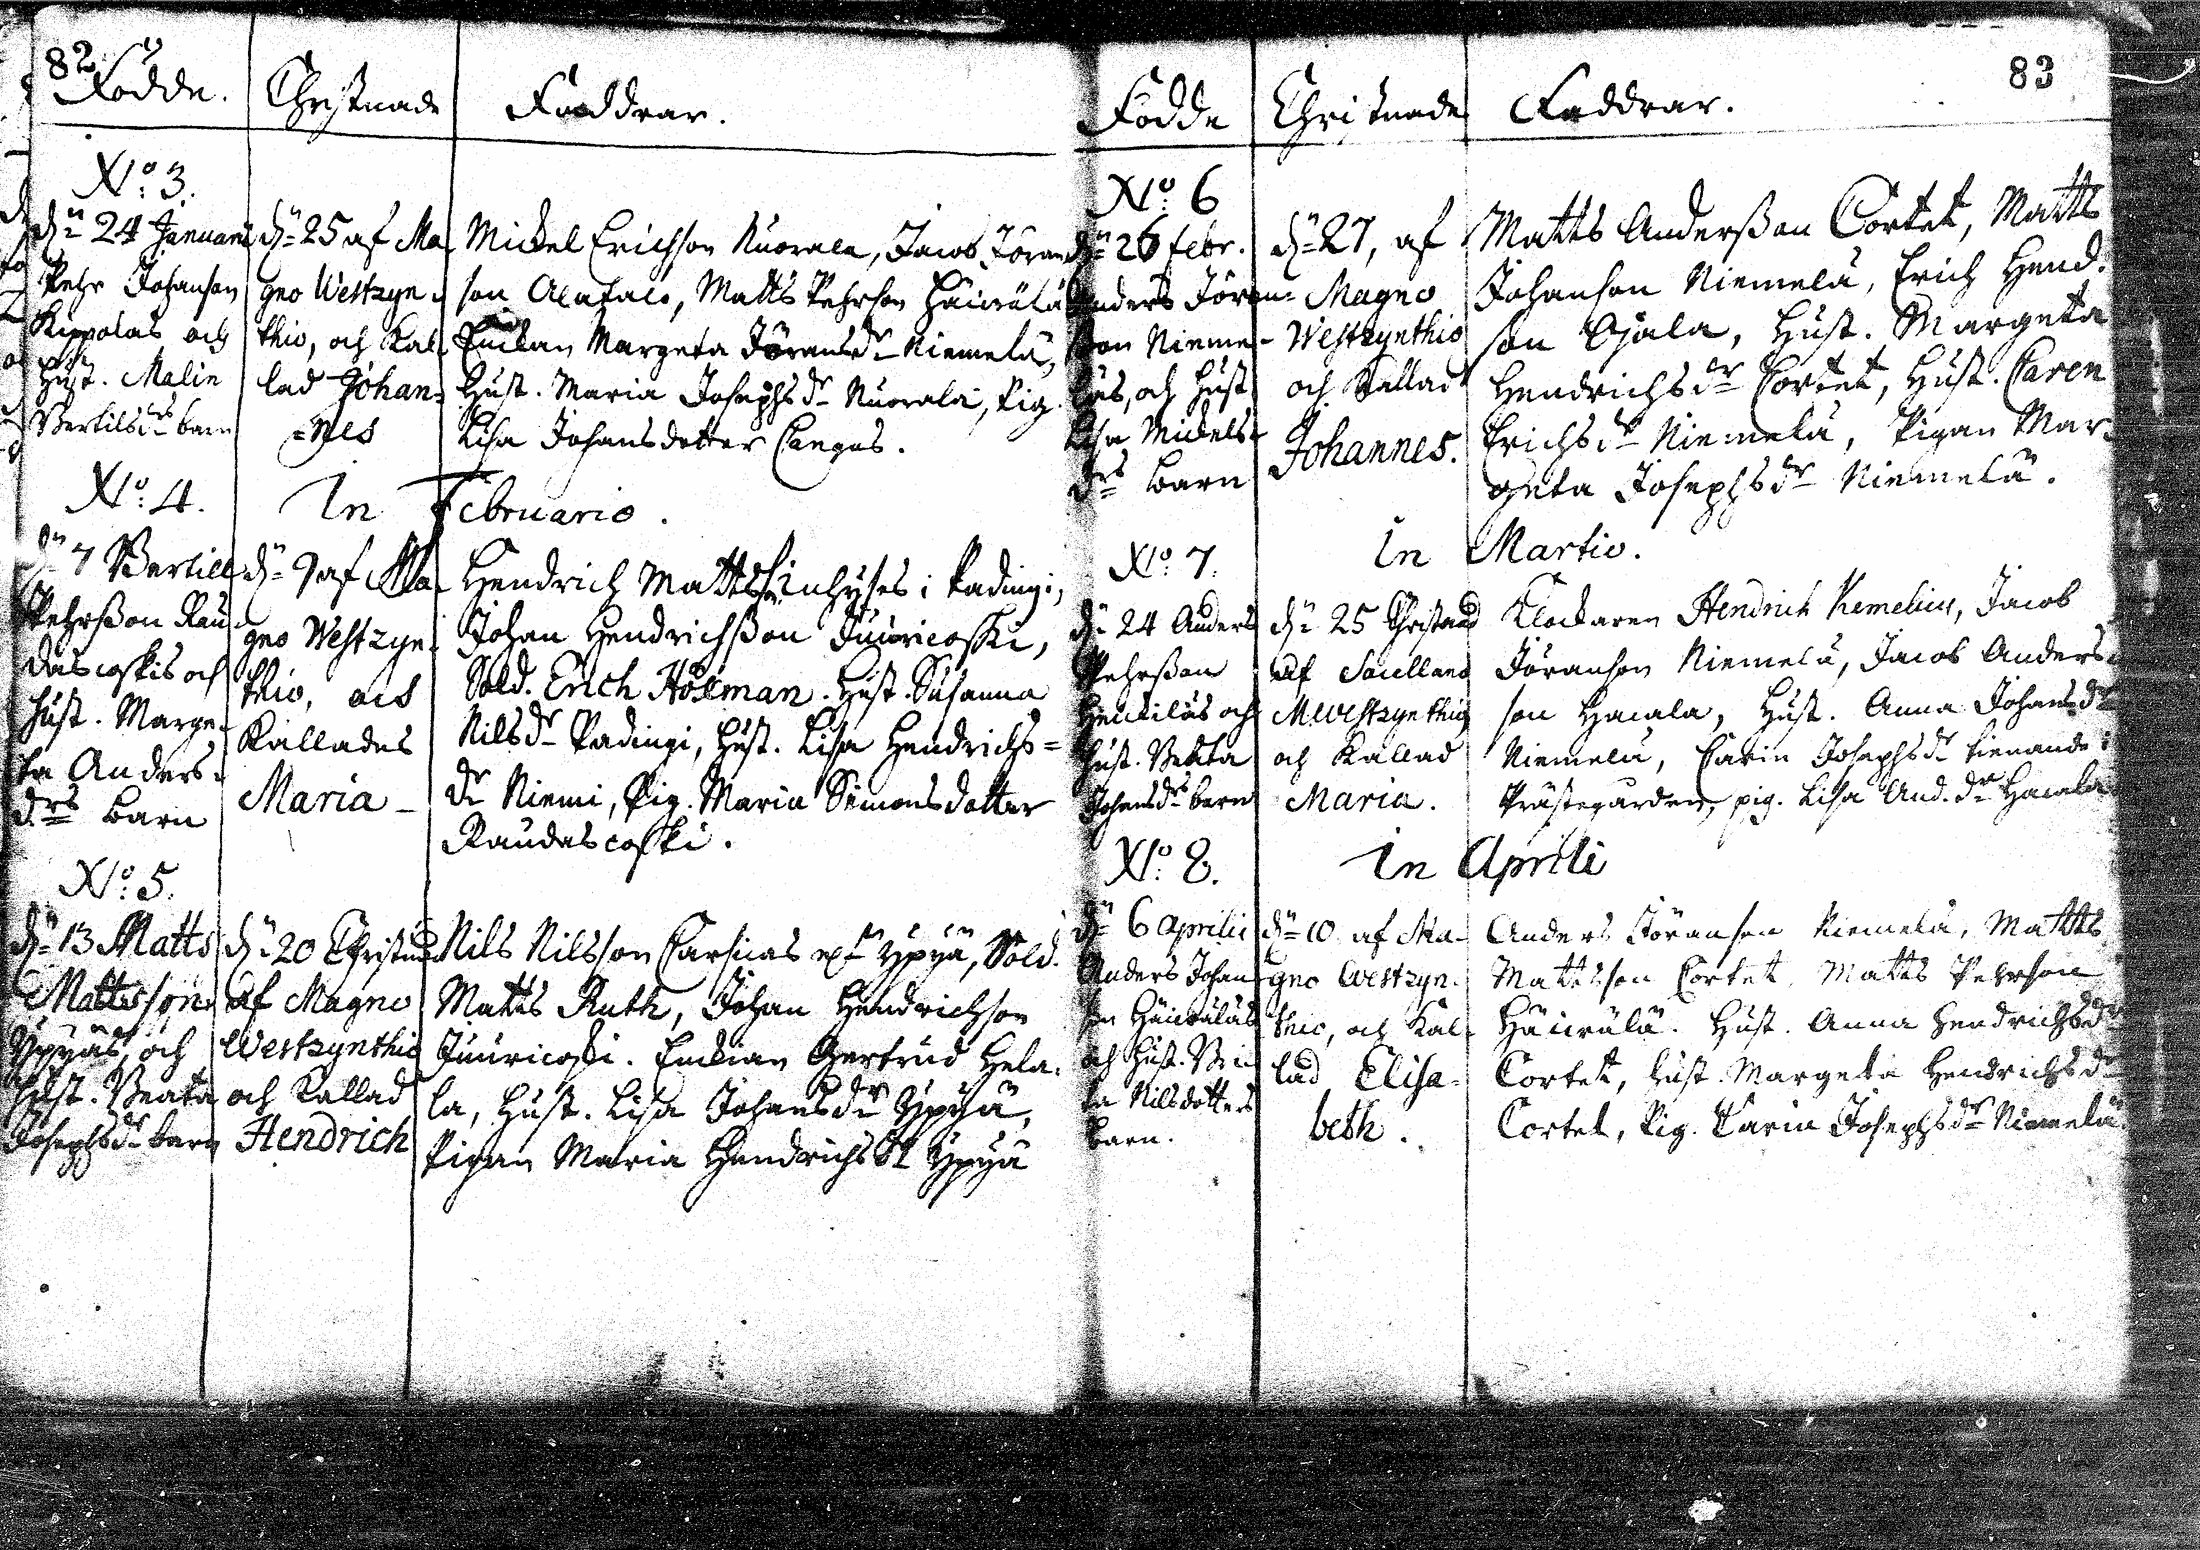 82.
Födde. Christnade Faddrar.
No: 3.
dn 24 Januarii
Pehr Johanson
Kippolas och
Hust. Malin
Bertilsdrs barn
dn 25 af Ma-
gno Westzyn-
thio, och kal-
lad Johan=
=nes
Mickel Erichson Nuorala, Jacob Jöran
son Alatalo, Matts Pehrson Häinälä
Enckan Margeta Jöransdr Niemelä,
Hust. Maria Josephsdr Nuorala, Pig.
Lisa Johansdotter Cangas.
No: 4.
In Februario.
dn 7 Bertill
Pehrßon Rau
dascoskis och
Hust. Marge-
ta Anders-
drs barn
dn 9 af Ma-
gno Westzyn-
thio, och
kallades
Maria
Hendrich Matts inhyses i Padingi,
Johan Hendrichßon Juuricoski,
Sold. Erich Hölman. Hust. Susanna
Nilsdr Padingi, Hust. Lisa Hendrichs=
dr Niemi, Pig. Maria Simonsdotter
Raudascoski.
No: 5.
dn 13 Matts
Mattsson
Yppyäs, och
Hust. Beata
Josephsdr barn
dn 20 Christnad
af Magno
Westzynthio
och kallad
Hendrich
Nils Nilsson Carsicas Yppyä, Sold.
Matts Ruth, Johan Hendrichson
Juuricoski. Enckan Gertrud Hela-
la, Hust. Lisa Johansdr Yppyä,
Pigan Maria Hendrichsdr Yppyä
83
Födde Christnade Faddrar.
No: 6
dn 26 febr.
Anders Jöran=
son Nieme-
läs, och Hust
Lisa Mickels-
drs barn
dn 27, af
Magno
Westzynthio
och kallad
Johannes.
Matts Anderßon Cortet, Matts
Johanson Niemelä, Erich Hend.
son Ojala, Hust. Margeta
Hendrichsdr Cortet, Hust. Caren
Erichsdr Niemelä, Pigan Mar-
geta Josephsdr Niemelä.
No: 7.
In Martio.
dn 24 Anders
Pehrßon
Hentiläs och
Hust. Beata
Johansdrs barn
dn 25 Christnad
af Sacellano
M Westzynthio
och kallad
Maria.
Klockaren Hendrich Kemelius, Jacob
Jöranson Niemelä, Jacob Anders-
son Haiala, Hust. Anna Johansdr
Niemelä, Carin Josephsdr tienande i
Prästegården, pig. Lisa And.dr Haiala
No: 8.
In Aprili
dn 6 Aprilis
Anders Johan
son Häinäläs
och Hust. Bri
ta Nilsdotters
barn.
dn 10 af Ma-
gno Westzyn-
thio, och kal-
lad Elisa-
beth.
Anders Jöranson Niemelä, Matts
Mattsson Cortet, Matts Pehrson
Häinälä. Hust. Anna Hendrichsdr
Cortet, Hust. Margeta Hendrichsdr
Cortet, Pig. Carin Josephsdr Niemelä